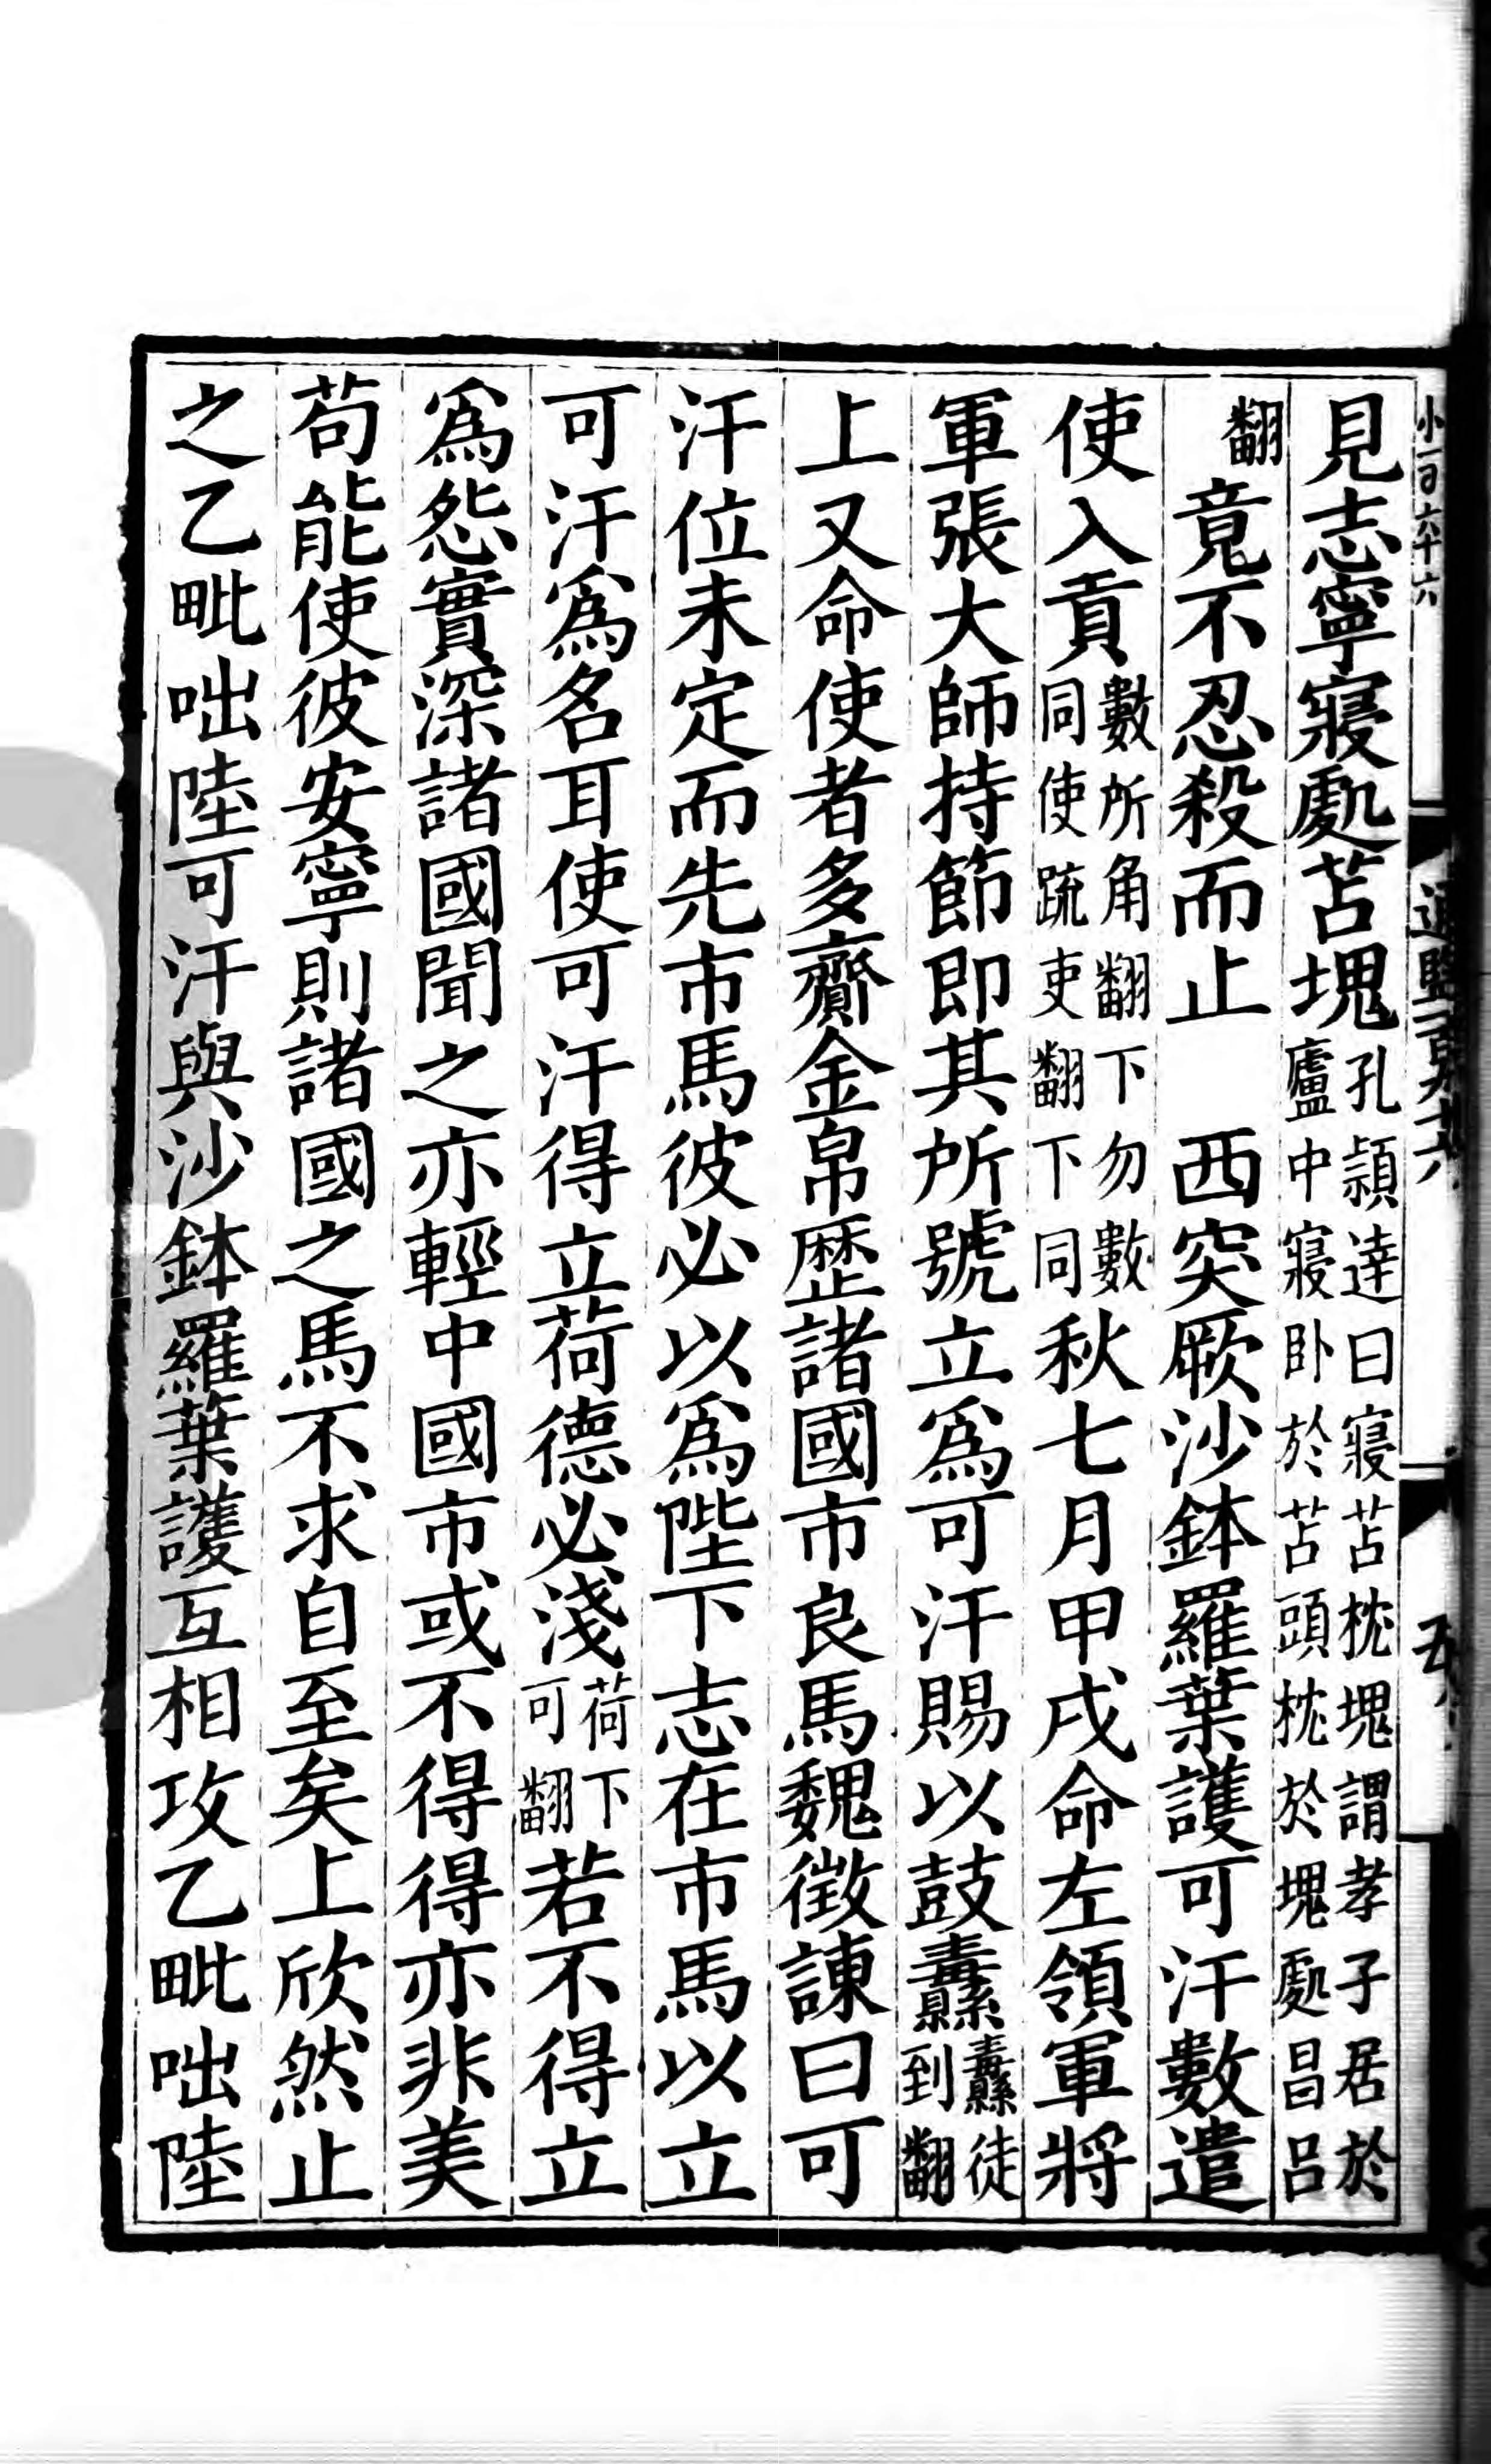 小一百六十六
見志寧寢處苫塊孔穎達曰寢苫枕塊謂孝子居於廬中寢卧於苫頭枕於塊處昌呂
翻竟不忍殺而止　西突厥沙鉢羅葉護可汗數遣
使入貢數所角翻下勿數同使疏吏翻下同秋七月甲戌命左領軍將
軍張大師持節即其所號立爲可汗賜以鼓纛纛徒到翻
上又命使者多齎金帛歷諸國市良馬魏徵諫曰可
汗位未定而先市馬彼必以爲陛下志在市馬以立
可汗爲名耳使可汗得立荷德必淺荷下可翻若不得立
爲怨實深諸國聞之亦輕中國市或不得得亦非美
苟能使彼安寧則諸國之馬不求自至矣上欣然止
之乙毗咄陸可汗與沙鉢羅葉護互相攻乙毗咄陸